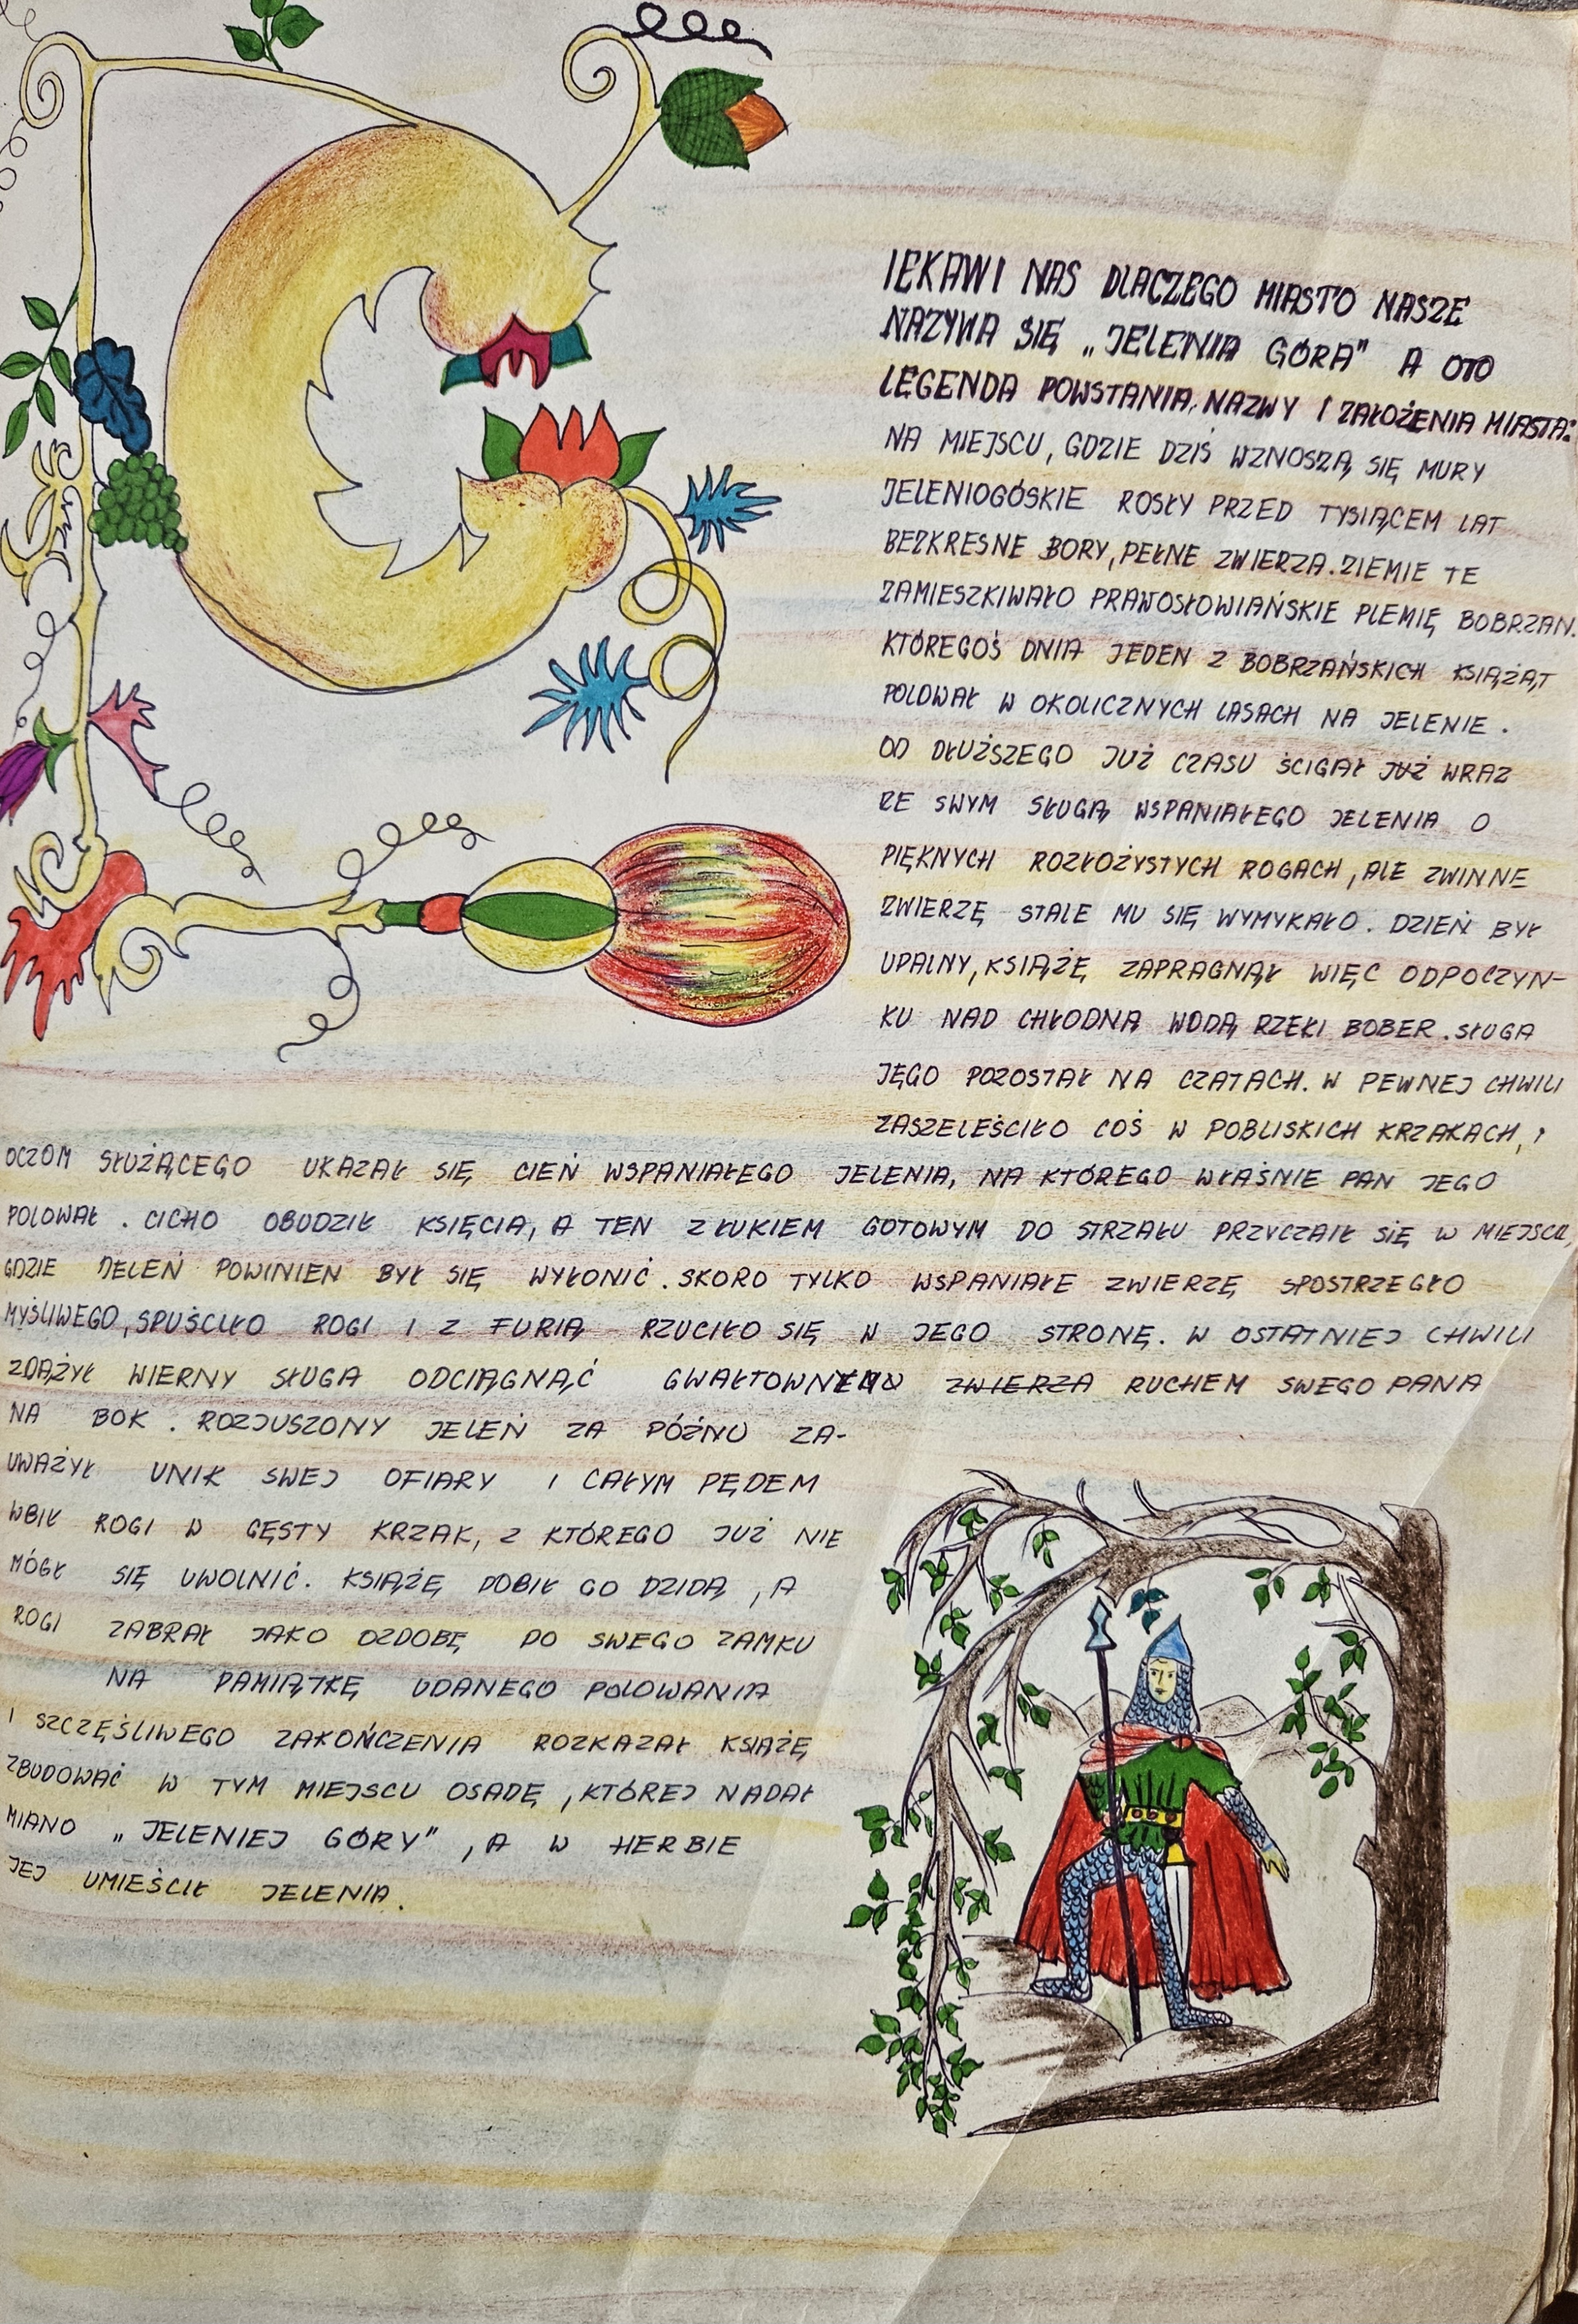 C
IEKAWI NAS DLACZEGO MIASTO NASZE
NAZYWA SIĘ „JELENIA GÓRA" A OTO
LEGENDA POWSTANIA NAZWY I ZAŁOŻENIA MIASTA:
NA MIEJSCU, GDZIE DZIŚ WZNOSZĄ SIĘ MURY
JELENIOGÓSKIE ROSŁY PRZED TYSIĄCEM LAT
BEZKRESNE BORY, PEŁNE ZWIERZA. ZIEMIE TE
ZAMIESZKIWAŁO PRAWOSŁOWIAŃSKIE PLEMIĘ BOBRZAN.
KTÓREGOŚ DNIA JEDEN Z BOBRZAŃSKICH KSIĄŻĄT
POLOWAŁ W OKOLICZNYCH LASACH NA JELENIE.
OD DŁUŻSZEGO JUŻ CZASU ŚCIGAŁ JUŻ WRAZ
ZE SWYM SŁUGĄ WSPANIAŁEGO JELENIA O
PIĘKNYCH ROZŁOŻYSTYCH ROGACH, ALE ZWINNE
ZWIERZĘ STALE MU SIĘ WYMYKAŁO. DZIEŃ BYŁ
UPALNY, KSIĄŻĘ ZAPRAGNĄŁ WIĘC ODPOCZYN-
KU NAD CHŁODNĄ WODĄ RZEKI BOBER. SŁUGA
JĘGO POZOSTAŁ NA CZATACH. W PEWNEJ CHWILI
ZASZELEŚCIŁO COŚ W POBLISKICH KRZAKACH, I
OCZOM SŁUŻĄCEGO UKAZAŁ SIĘ CIEŃ WSPANIAŁEGO JELENIA, NA KTÓREGO WŁAŚNIE PAN JEGO
POLOWAŁ. CICHO OBUDZIŁ KSIĘCIA, A TEN Z ŁUKIEM GOTOWYM DO STRZAŁU PRZYCZAIŁ SIĘ W MIEJSCU,
GDZIE JELEŃ POWINIEN BYŁ SIĘ WYŁONIĆ. SKORO TYLKO WSPANIAŁE ZWIERZĘ SPOSTRZEGŁO
MYŚLIWEGO, SPUŚCIŁO ROGI I Z FURIĄ RZUCIŁO SIĘ W JEGO STRONĘ. W OSTATNIEJ CHWILI
ZDĄŻYŁ WIERNY SŁUGA ODCIĄGNĄĆ ZWIERZA RUCHEM SWEGO PANA
NA BOK. ROZJUSZONY JELEŃ ZA PÓŹNO ZA-
UWAŻYŁ UNIK SWEJ OFIARY I CAŁYM PĘDEM
WBIŁ ROGI W GĘSTY KRZAK, Z KTÓREGO JUŻ NIE
MÓGŁ SIĘ UWOLNIĆ. KSIĄŻĘ DOBIŁ GO DZIDĄ, A
ROGI ZABRAŁ JAKO OZDOBĘ DO SWEGO ZAMKU
NA PAMIĄTKĘ UDANEGO POLOWANIA
I SZCZĘŚLIWEGO ZAKOŃCZENIA ROZKAZAŁ KSIĄŻĘ
ZBUDOWAĆ W TYM MIEJSCU OSADĘ, KTÓREJ NADAŁ
MIANO „JELENIEJ GÓRY", A W HERBIE
JEJ UMIEŚCIŁ JELENIA.